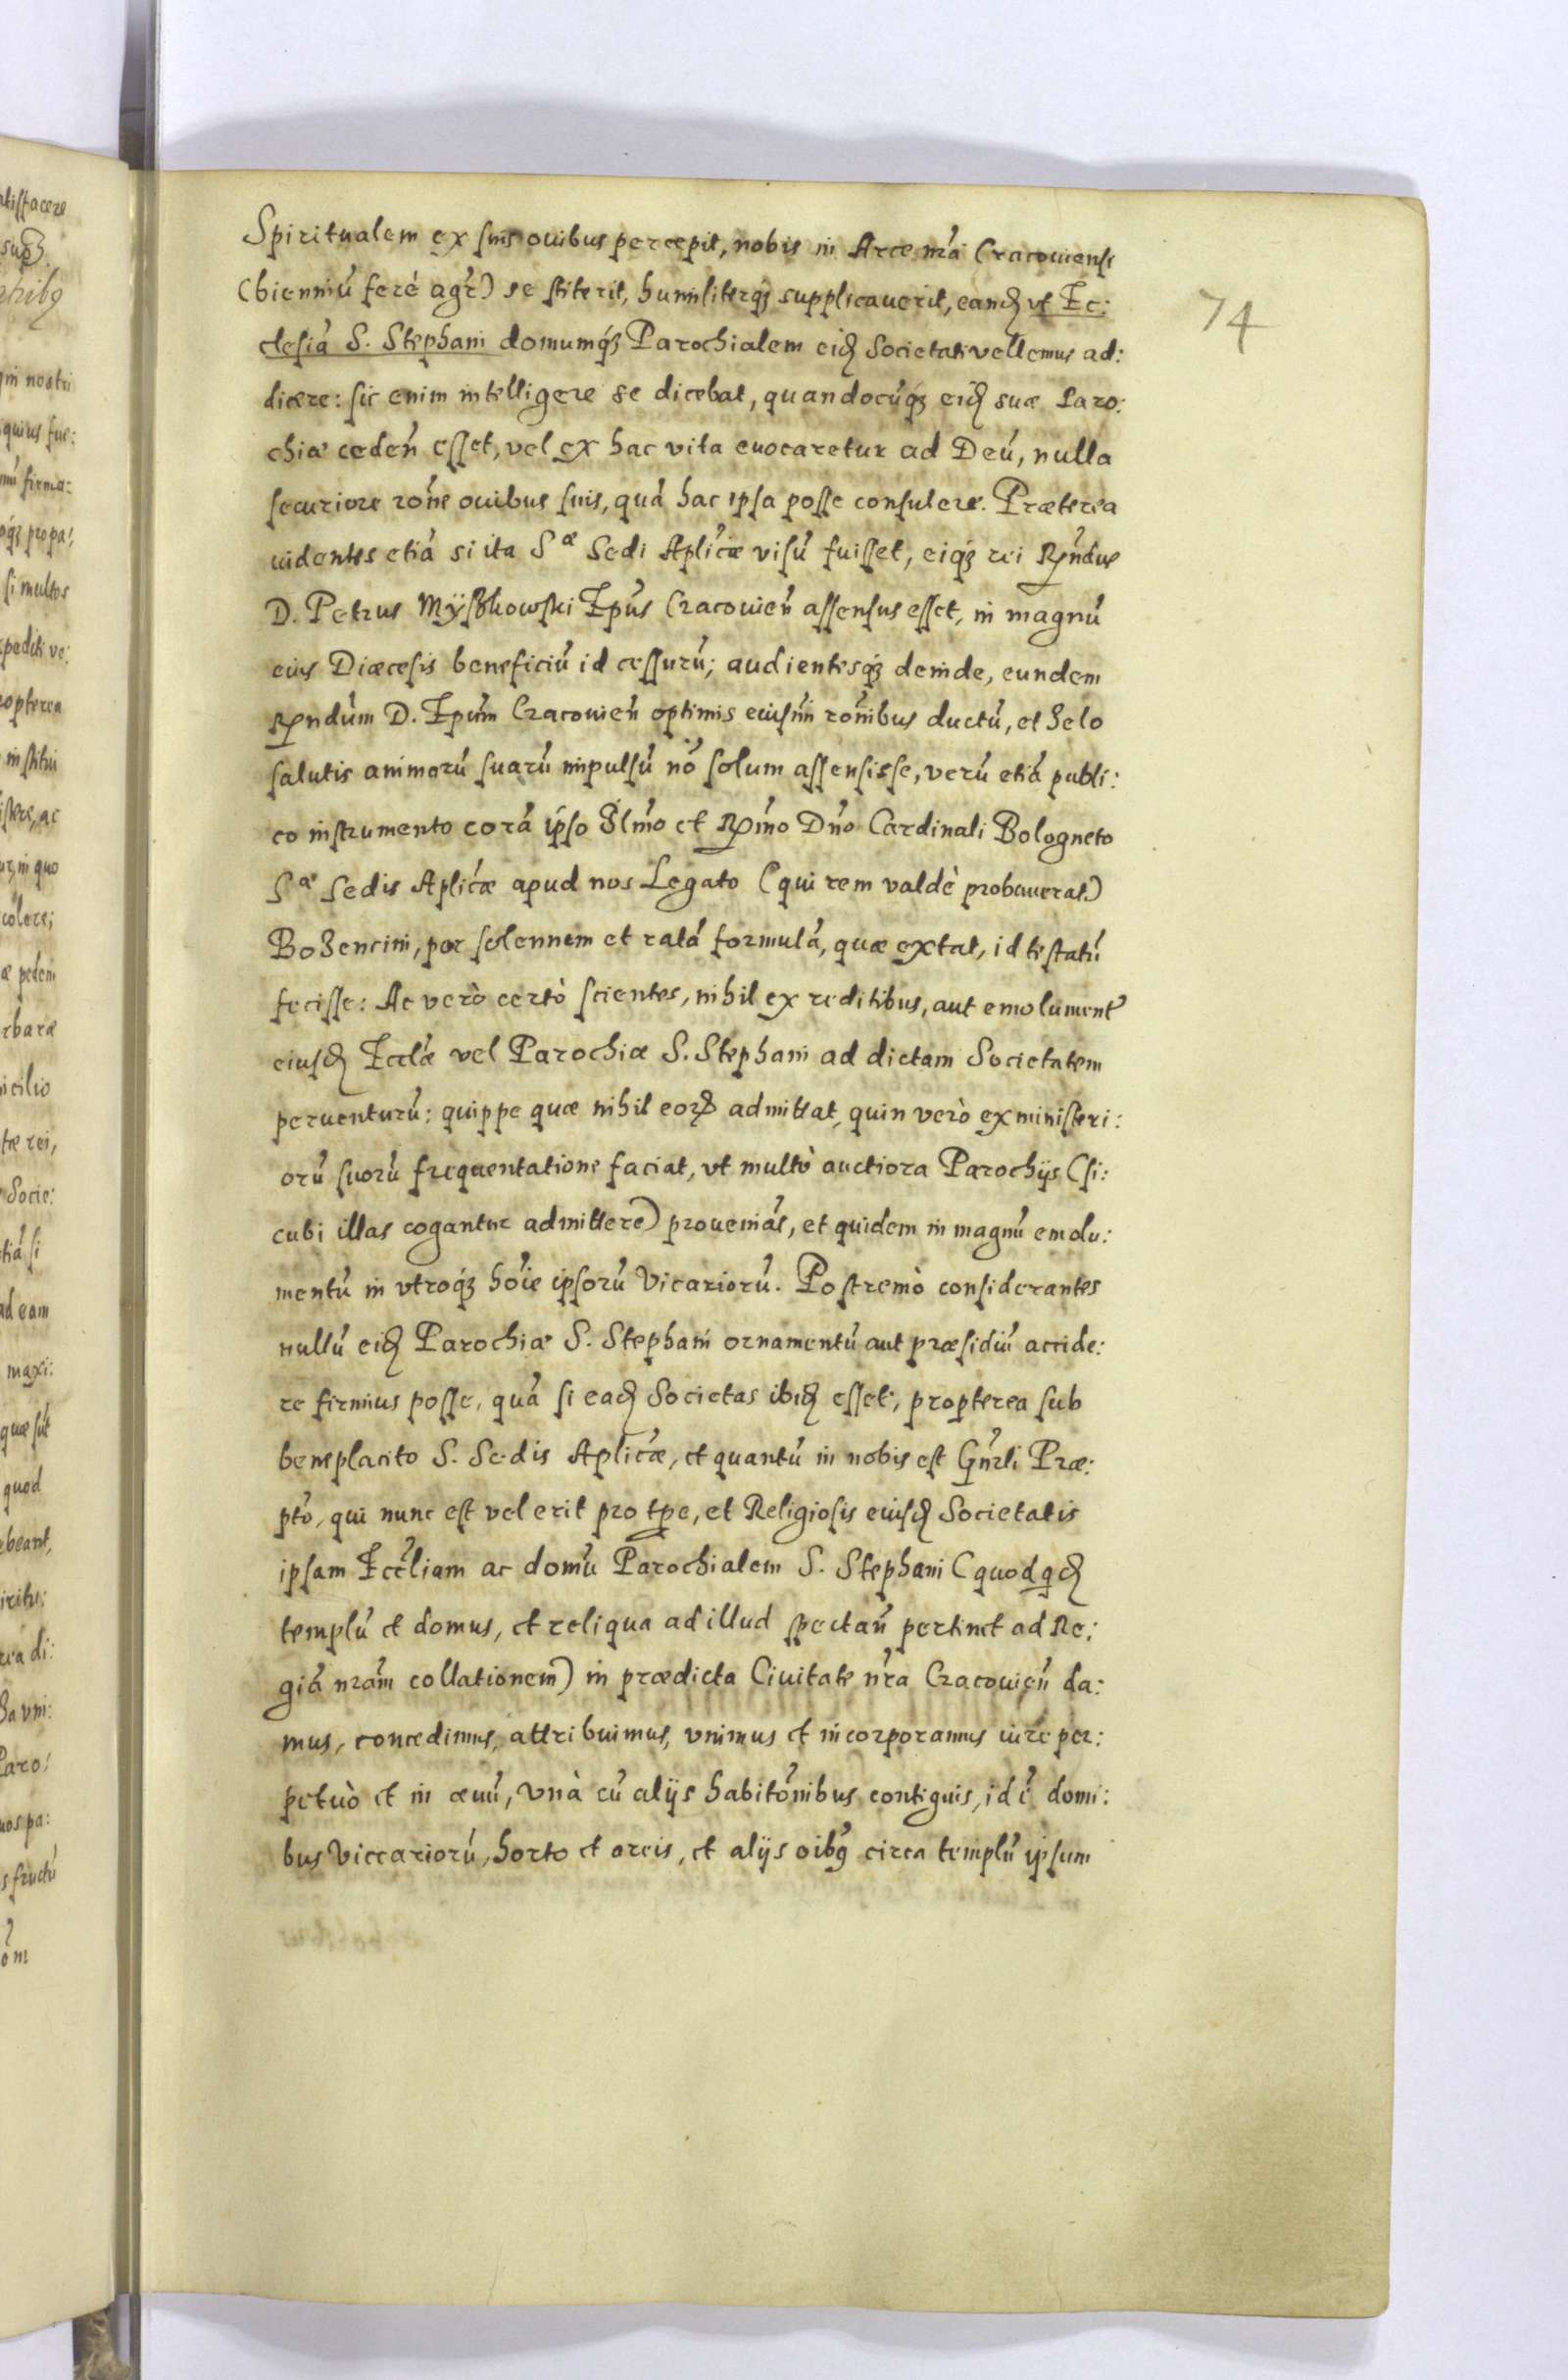 Spiritualem ex suis ouibus percepit, nobis in Arce nrã Cracouiensi
(bienniũ ferè agr̃) se stiterit, humiliterq́ꝫ supplicauerit, eand. vt Ec:
clesiã S. Stephani domumq́ꝫ Parochialem eid. Societati vellemus ad:
dicere: sic enim intelligere se dicebat, quandocũqꝫ eid. suæ Paro:
chiæ ceden̄ esset, vel ex hac vita euocaretur ad Deũ, nulla
securiore rõne ouibus suis, quã hac ipsa posse consulere. Præterea
uidentes etiã si ita Sᵃᵉ Sedi Aplicæ visũ fuisset, eiqꝫ rei Rñdus
D. Petrus Mÿszkowski Epũs Cracouieñ assensus esset, in magnũ
eius Diæcesis beneficiũ id cessurũ; audientesqꝫ deinde, eundem
Rndũm D. Epũm Cracouieñ optimis eiusm̃i rõnibus ductũ, et Zelo
salutis animarũ suarũ impulsũ nõ solum assensisse, verũ etiã publi:
co instrumento corã ipso Illm̃o et Rm̃o Dño Cardinali Bologneto
Sᵃᵉ Sedis Aplicæ apud nos Legato (qui rem valdè probauerat)
Bozencini, per solennem et ratã formulã, quæ extat, id testatũ
fecisse: Ac verò certò scientes, nihil ex reditibus, aut emolument̃
eiusd. Eccl̃æ vel Parochiæ S. Stephani ad dictam Societatem
peruenturũ: quippe quæ nihil eorꝝ admittat, quin verò ex ministeri:
orũ suorũ frequentatione faciat, vt multò auctiora Parochijs (si:
cubi illas cogantur admittere) proueniãt, et quidem in magnũ emolu:
mentũ in vtroqꝫ hõie ipsorũ Vicariorũ. Postremò considerantes
nullũ eid. Parochiæ S. Stephani ornamentũ aut præsidiũ accide:
re firmius posse, quã si ead. Societas ibid. esset; propterea sub
beneplacito S. Sedis Aplicæ, et quantũ in nobis est Gñrli Præ:
ptõ, qui nunc est vel erit pro tpe, et Religiosis eiusd. Societatis
ipsam Eccl̃iam ac domũ Parochialem S. Stephani (quod qd.
templũ et domus, et reliqua ad illud spectañ pertinet ad Re:
giã nrãm collationem) in prædicta Ciuitate nr̃a Cracouieñ da:
mus, concedimus, attribuimus, vnimus et incorporamus iure per:
petuò et in æuũ, vnà cũ alijs habitõnibus contiguis, id ẽ domi:
bus Viccariorũ, horto et areis, et alijs oĩbꝯ circa templũ ipsum
74